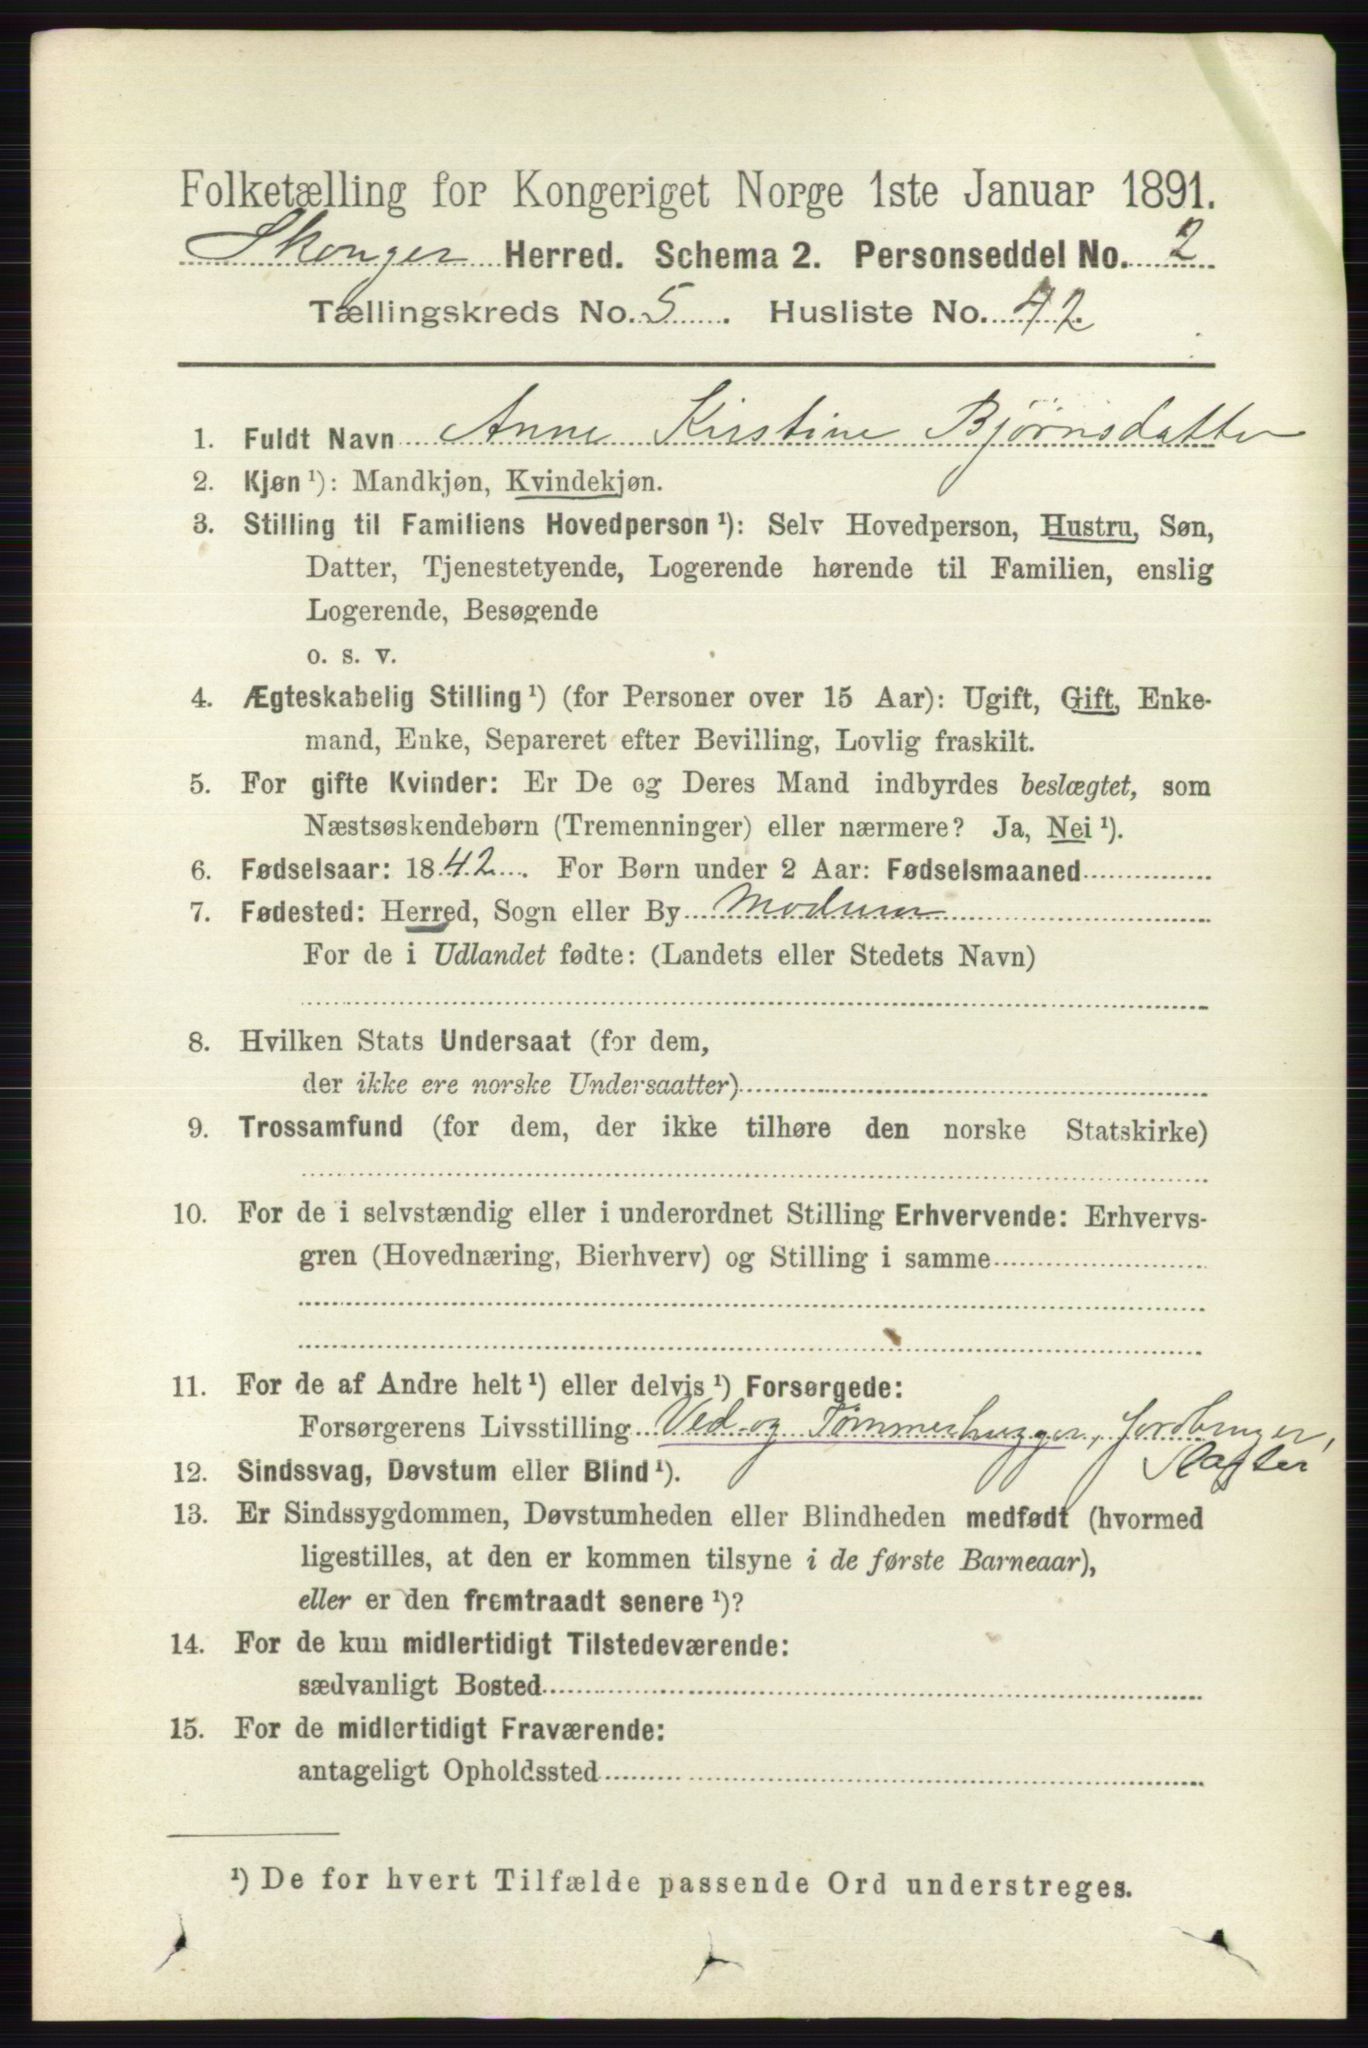 Folketælling for Kongeriget Norge 1ste Januar 1891.
Skoger Herred. Schema 2. Personseddel No. 2
Tællingskreds No. 5. Husliste No. 42.
1. Fuldt Navn Anne Kirstine Bjørnsdatter
2. Kjøn ¹): Mandkjøn, Kvindekjøn.
3. Stilling til Familiens Hovedperson ¹): Selv Hovedperson, Hustru, Søn,
Datter, Tjenestetyende, Logerende hørende til Familien, enslig
Logerende, Besøgende
o. s. v.
4. Ægteskabelig Stilling ¹) (for Personer over 15 Aar): Ugift, Gift, Enke-
mand, Enke, Separeret efter Bevilling, Lovlig fraskilt.
5. For gifte Kvinder: Er De og Deres Mand indbyrdes beslægtet, som
Næstsøskendebørn (Tremenninger) eller nærmere? Ja, Nei ¹).
6. Fødselsaar: 1842. For Børn under 2 Aar: Fødselsmaaned
7. Fødested: Herred, Sogn eller By Modum
For de i Udlandet fødte: (Landets eller Stedets Navn)
8. Hvilken Stats Undersaat (for dem,
der ikke ere norske Undersaatter)
9. Trossamfund (for dem, der ikke tilhøre den norske Statskirke)
10. For de i selvstændig eller i underordnet Stilling Erhvervende: Erhvervs-
gren (Hovednæring, Bierhverv) og Stilling i samme
11. For de af Andre helt ¹) eller delvis ¹) Forsørgede:
Forsørgerens Livsstilling Ved- og Tømmerhugger, Jordbruger,
Slagter
12. Sindssvag, Døvstum eller Blind ¹).
13. Er Sindssygdommen, Døvstumheden eller Blindheden medfødt (hvormed
ligestilles, at den er kommen tilsyne i de første Barneaar),
eller er den fremtraadt senere ¹)?
14. For de kun midlertidigt Tilstedeværende:
sædvanligt Bosted
15. For de midlertidigt Fraværende:
antageligt Opholdssted
¹) De for hvert Tilfælde passende Ord understreges.